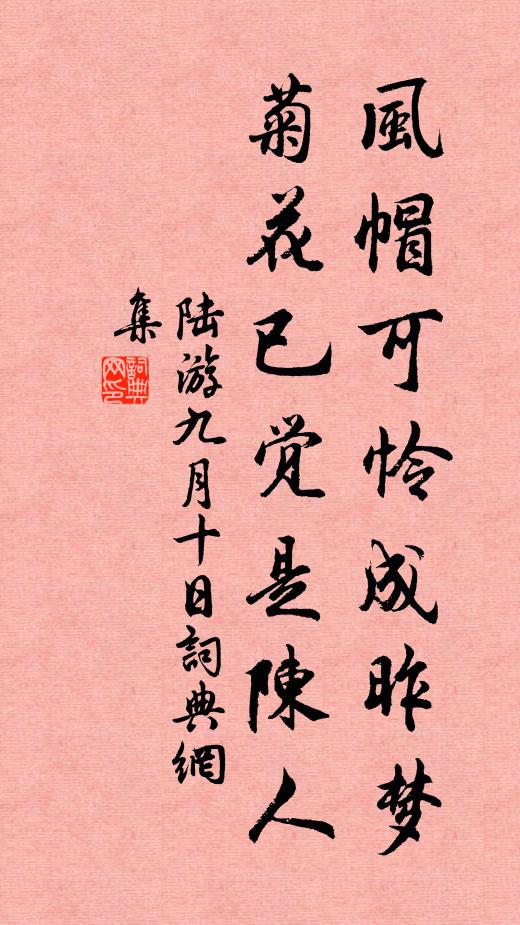 風帽可怜成昨梦
菊花已觉是陳人
陆游九月十日詞典網
集
詞典网印